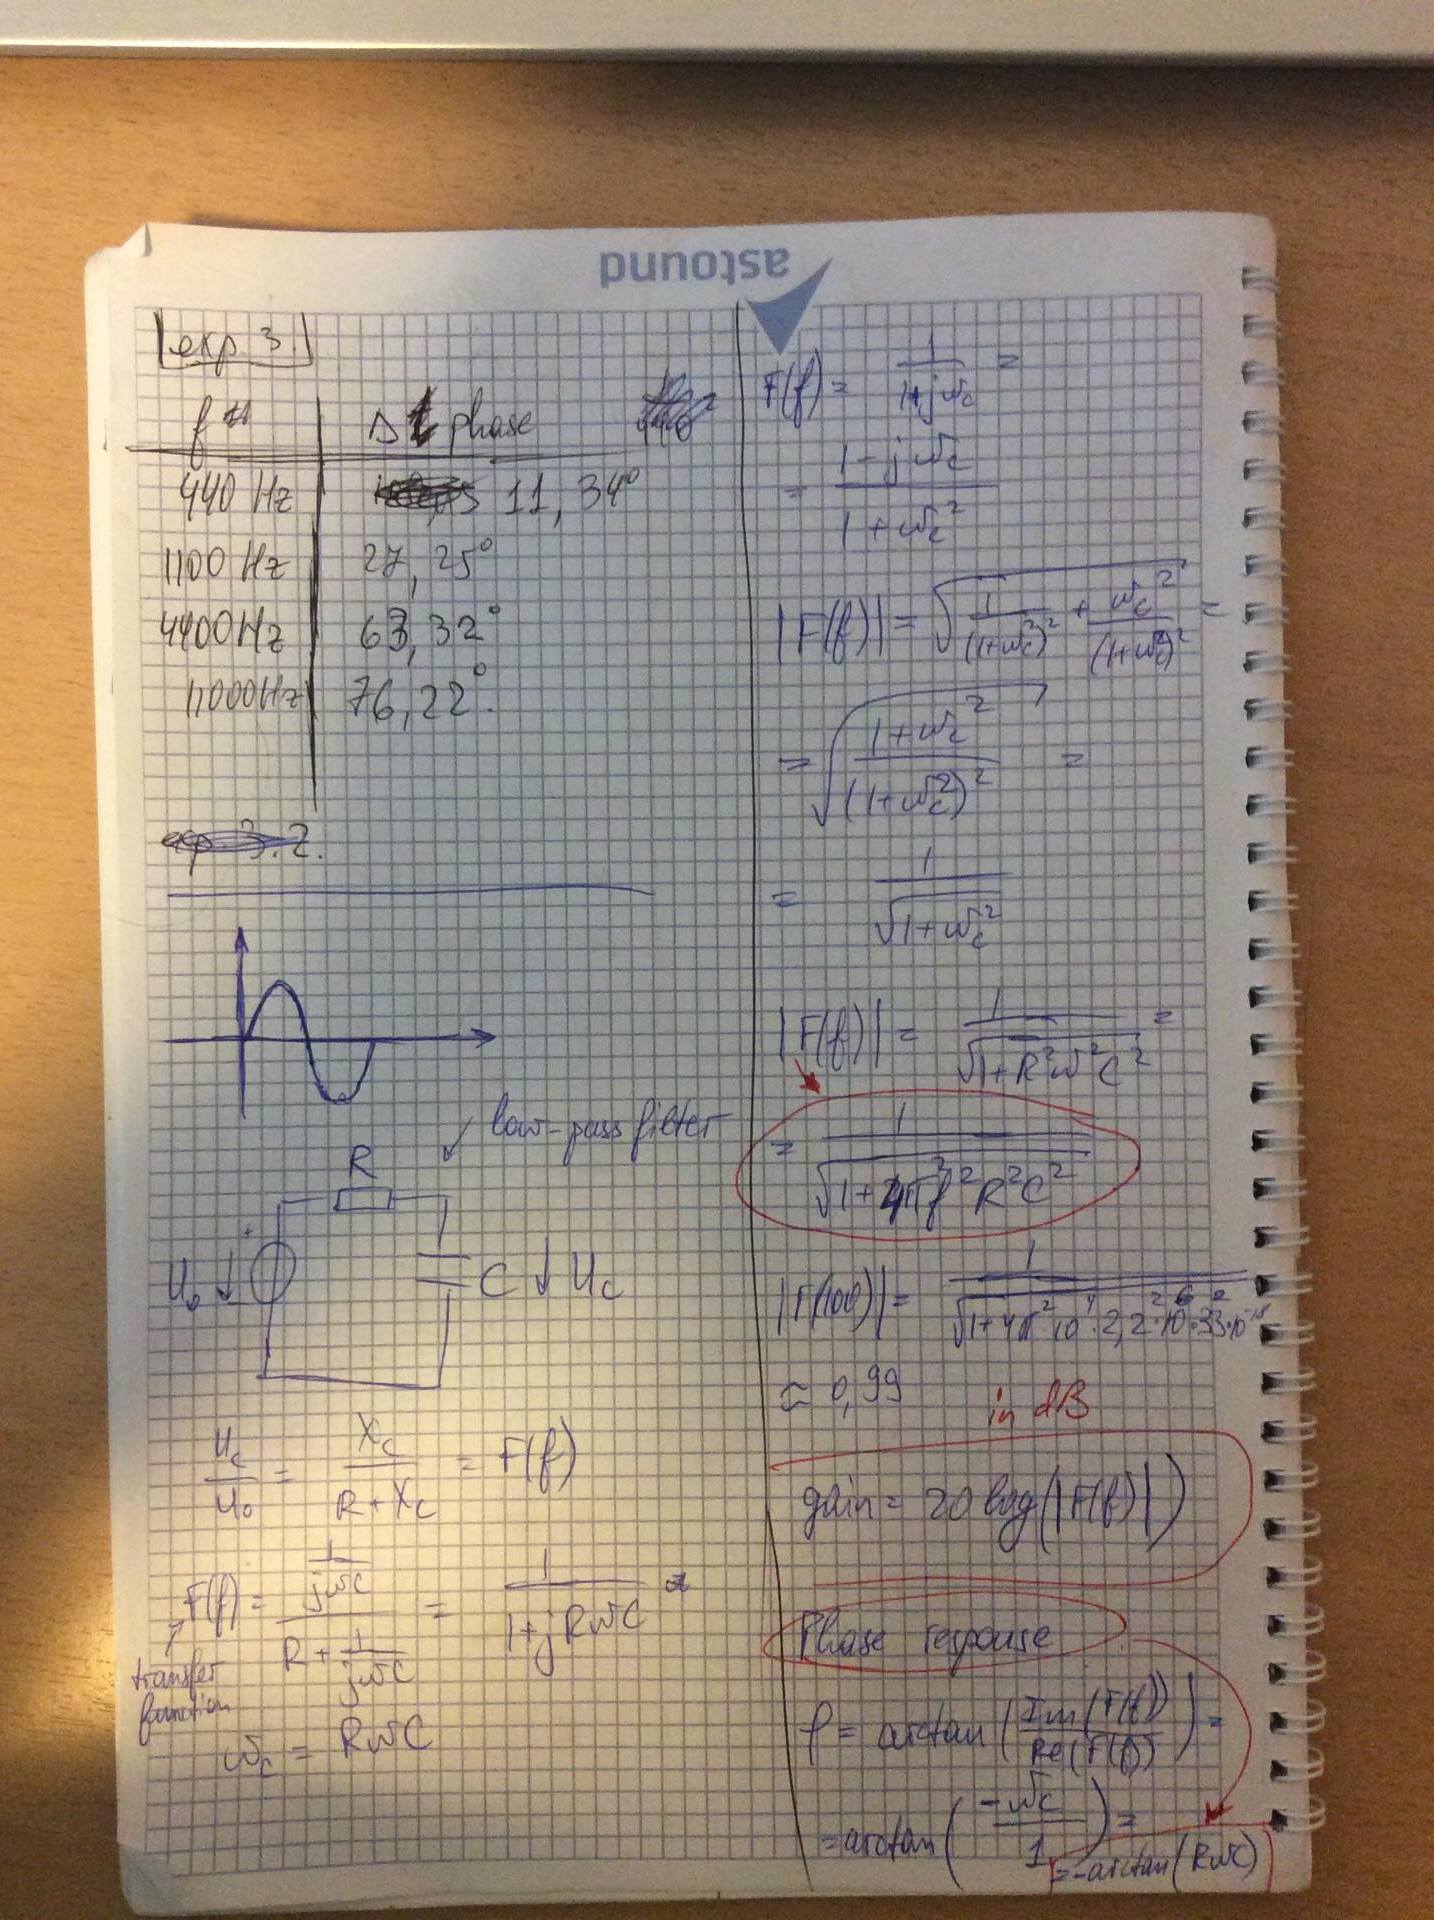 astound
exp. 3.
f Hz | Δt phase
440 Hz | 11,34°
1100 Hz | 27,25°
4400 Hz | 63,32°
11000 Hz | 76,22°.
exp. 3.2.
low-pass filter
R
+
U₀ ↓
C ↓ U_C
U_C/U₀ = X_C/(R + X_C) = F(f)
F(f) = (1/(jωC))/(R + 1/(jωC)) = 1/(1+jRωC) =
transfer
function
ω_c = RωC
F(f) = 1/(1+jω_c) =
= (1-jω_c)/(1+ω_c²)
|F(f)| = √(1/(1+ω_c²)² + ω_c²/(1+ω_c²)²) =
= √((1+ω_c²)/(1+ω_c²)²) =
= 1/√(1+ω_c²)
|F(f)| = 1/√(1+R²ω²C²) =
= 1/√(1+4π²f²R²C²)
|F(100)| = 1/√(1+4π²10⁴·2,2²·10⁶·33²·10⁻¹⁸)
≈ 0,99
in dB
gain = 20 log(|F(f)|)
Phase response
φ = arctan(Im(F(f))/Re(F(f))) =
= arctan(-ω_c/1) =
= -arctan(RωC)